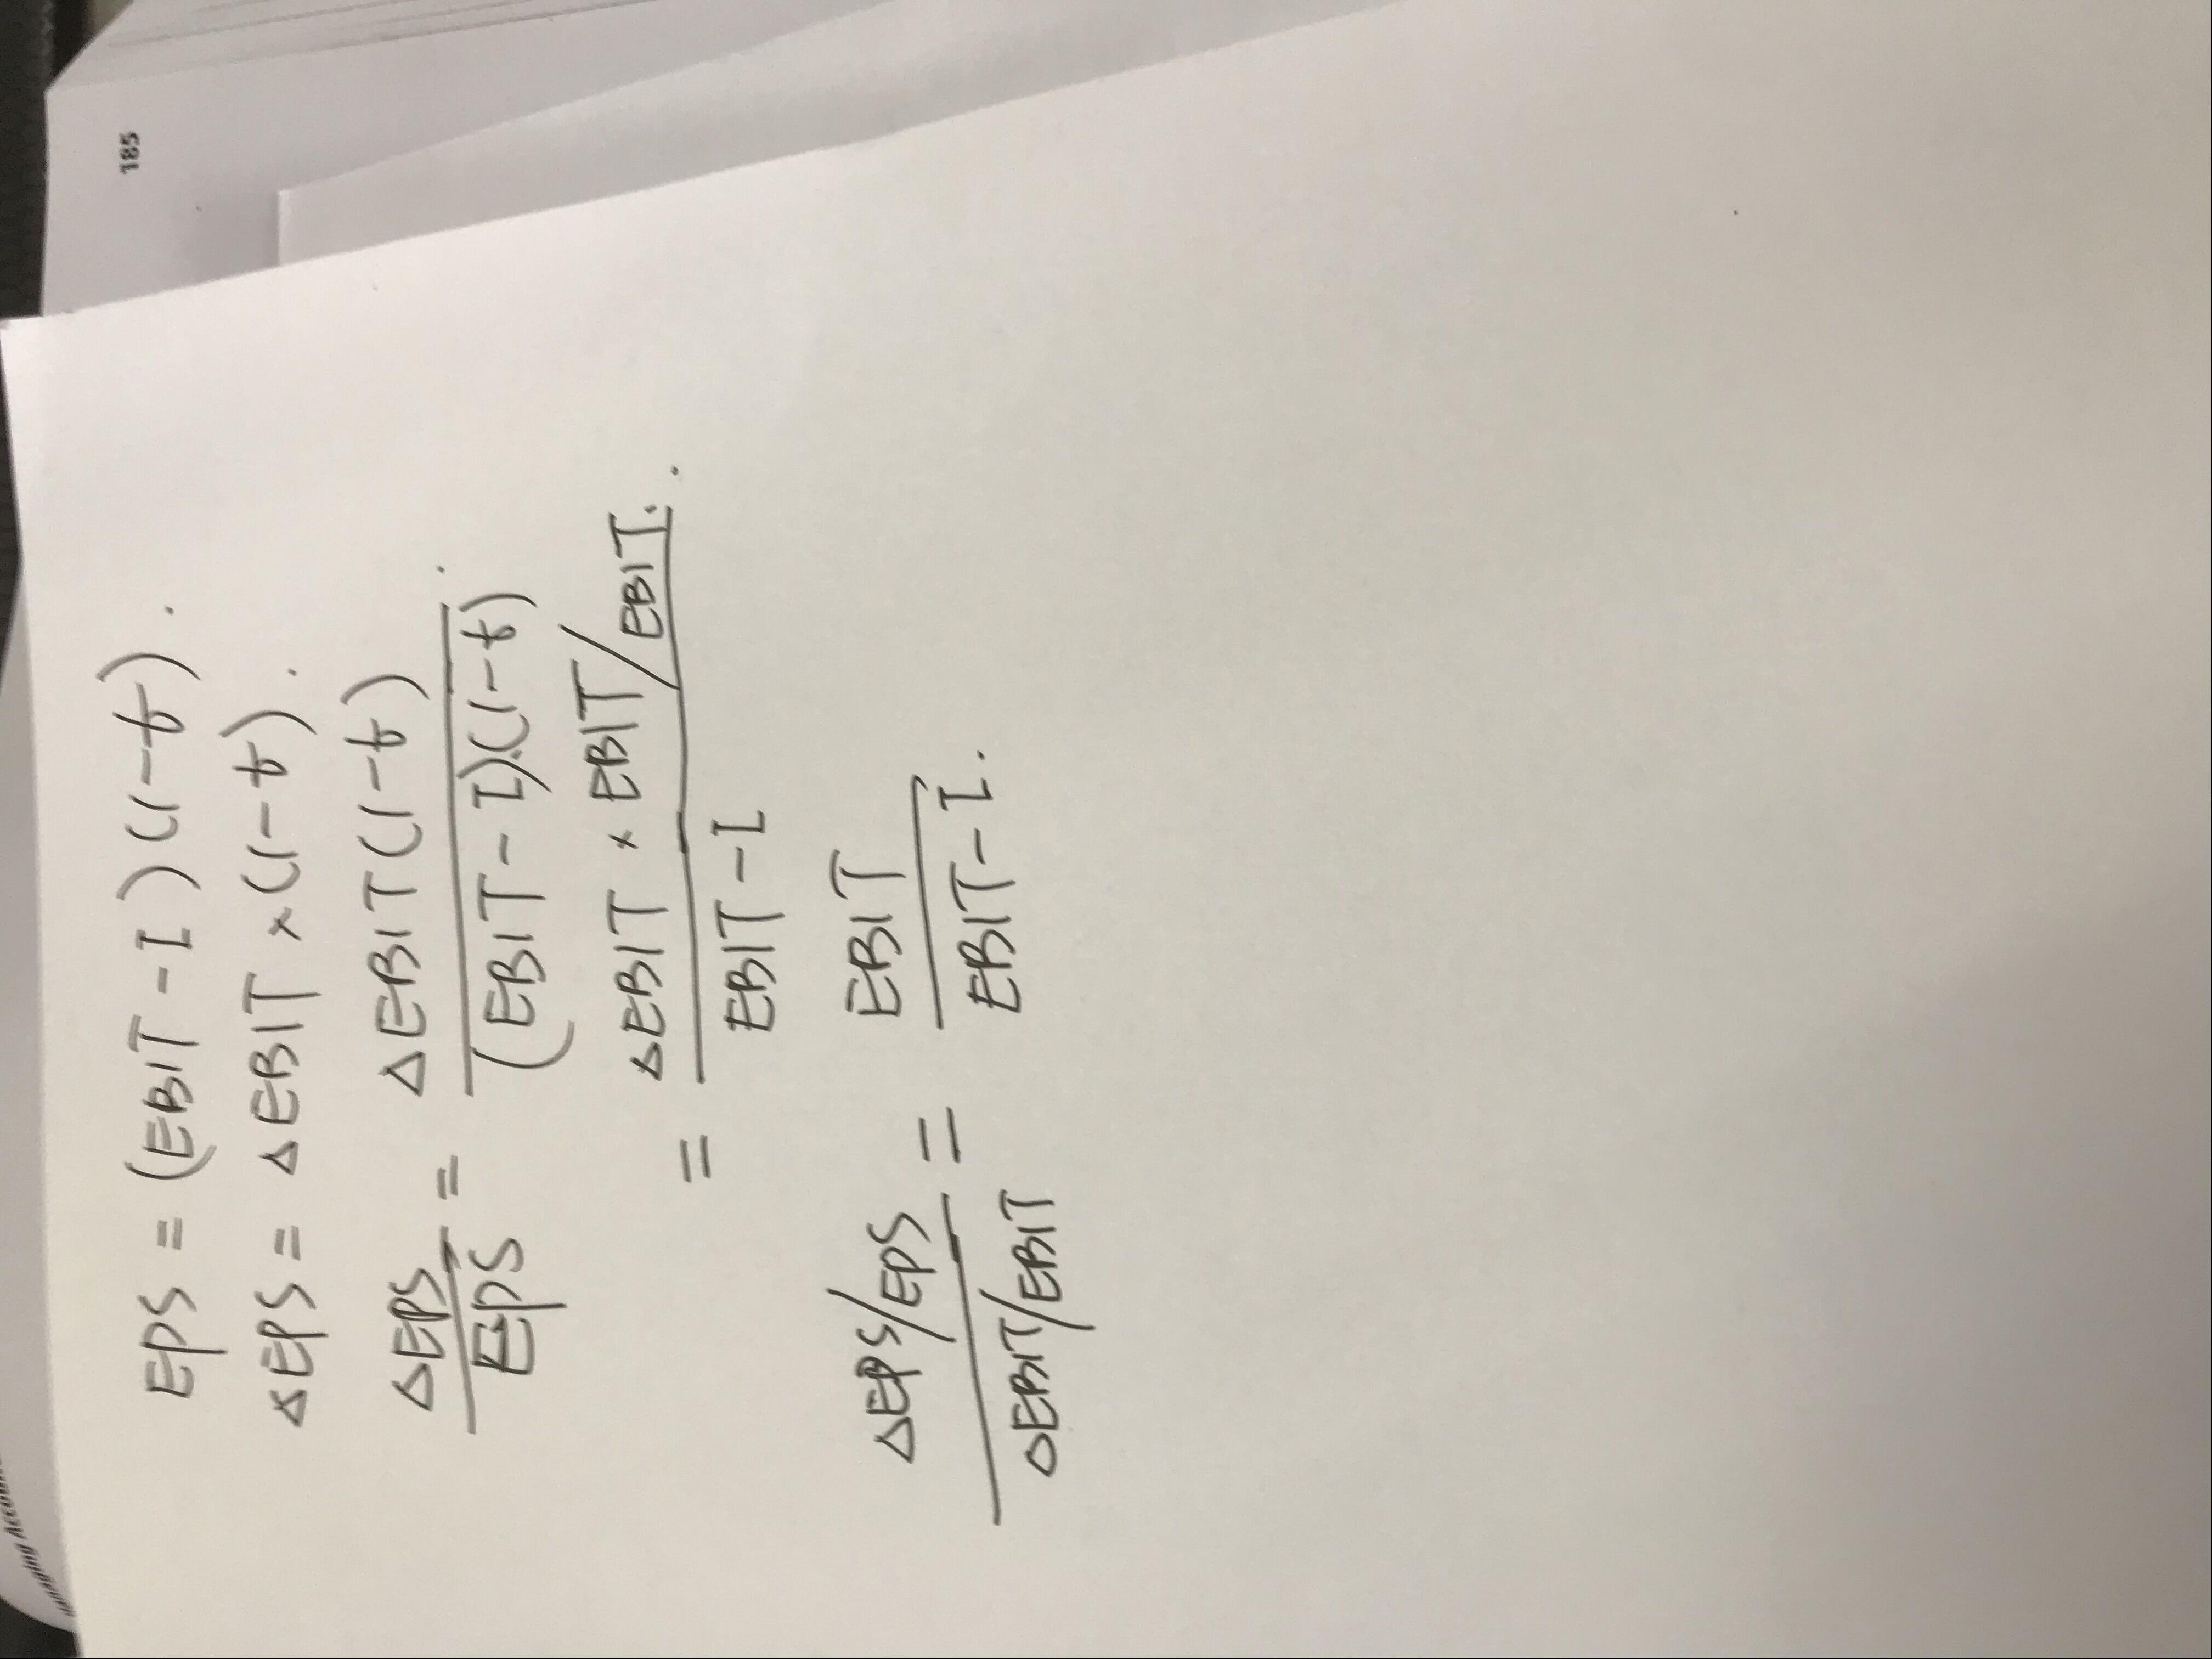 185
EPS = (EBIT - I)(1-t).
ΔEPS = ΔEBIT × (1-t).
ΔEPS/EPS = ΔEBIT(1-t)/(EBIT - I).(1-t).
= ΔEBIT × EBIT/EBIT./EBIT - I.
ΔEPS/EPS/ΔEBIT/EBIT = EBIT/EBIT - I.